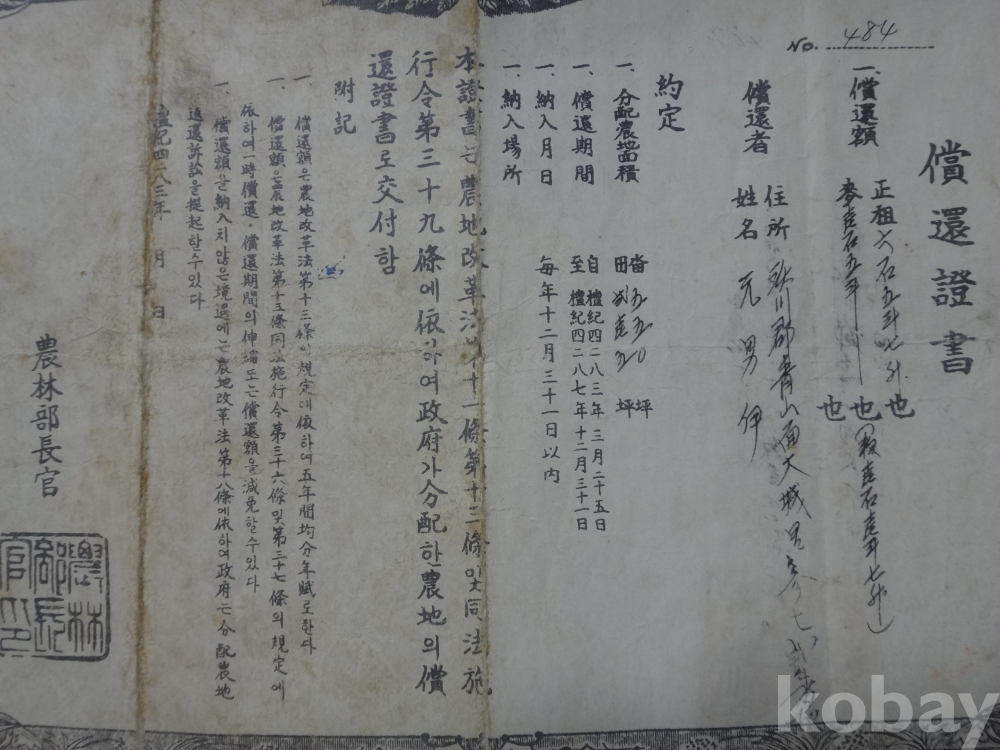 No. 484
償還證書
一、償還額 正租 六石五斗七升 也
麥 壹石五斗 也
償還者 住所 郡靑山面大城里
姓名 元男伊
約定
一、分配農地面積 畓 五五〇 坪
田 坪
一、償還期間 自 檀紀四二八三年 三月二十五日
至 檀紀四二八七年十二月三十一日
一、納入月日 每年十二月三十一日以內
一、納入場所
本證書는農地改革法第十一條第十三條及同法施
行令第三十九條에依하여政府가分配한農地의償
還證書로交付함
附記
一、償還額은農地改革法第十三條의規定에依하여五年間均分年賦로한다
一、償還額은農地改革法第十三條同法施行令第三十六條및第三十七條의規定에
依하여一時償還、償還期間의伸縮또는償還額을減免할수있다
一、償還額을納入치않은境遇에는農地改革法第十八條에依하여政府는分配農地
返還訴訟을提起할수있다
檀紀四二八三年 月 日
農林部長官
農林部長官印
kobay